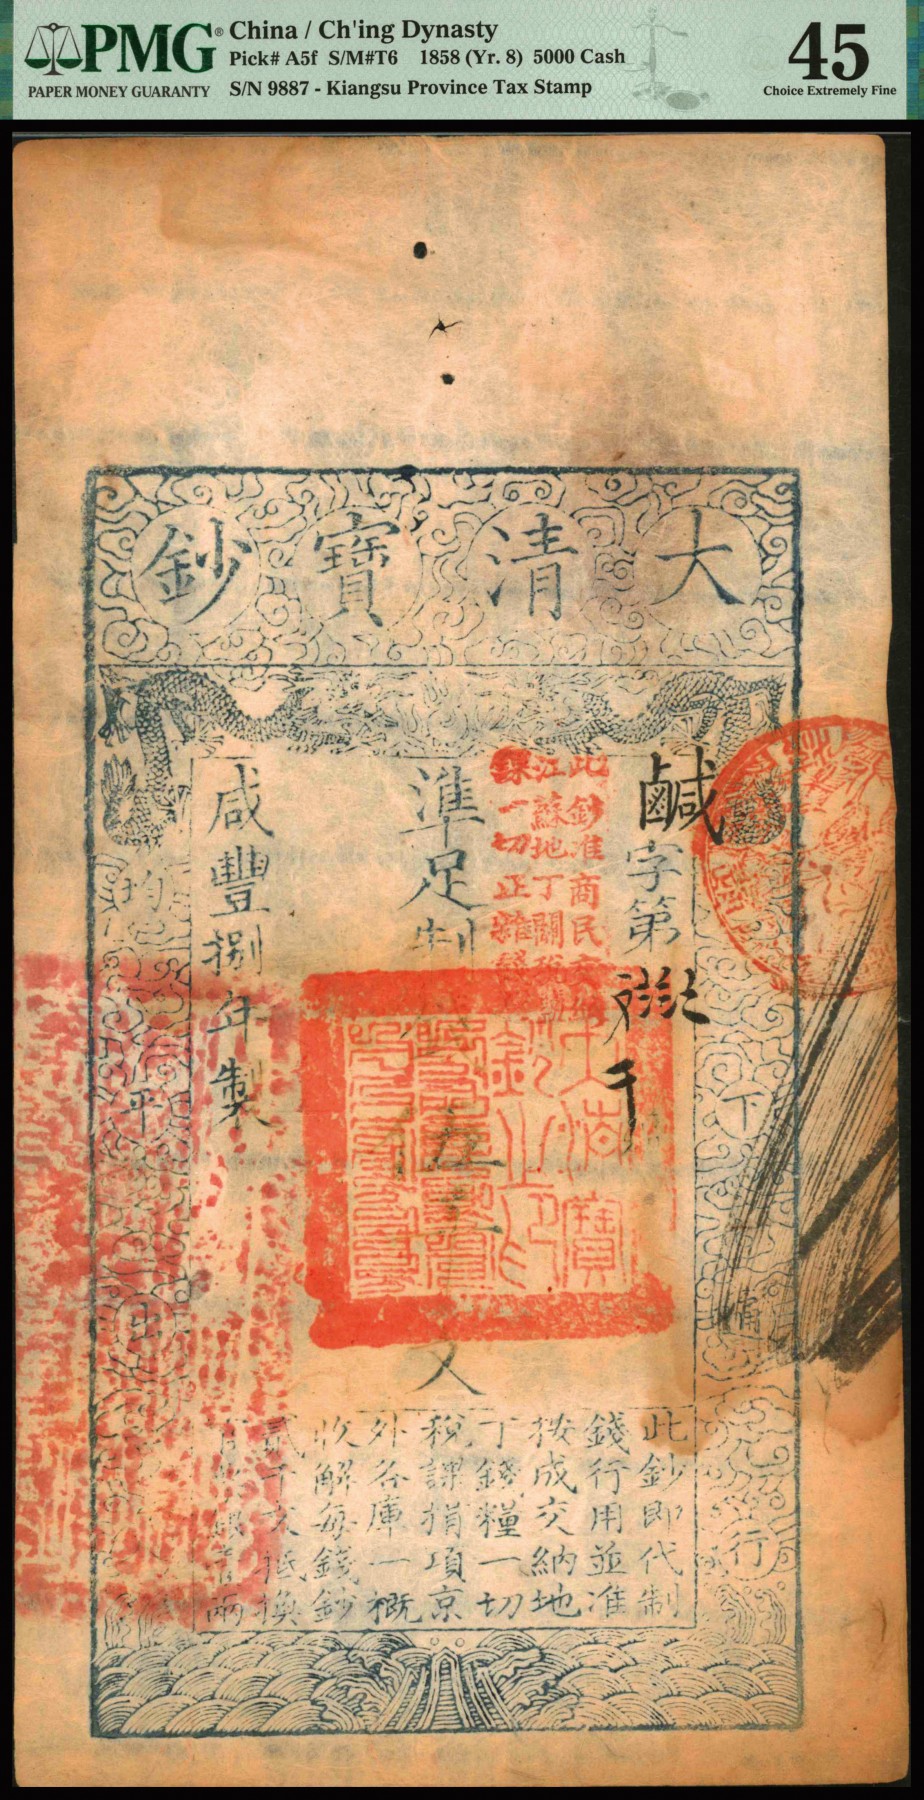 PMG®
PAPER MONEY GUARANTY
China / Ch'ing Dynasty
Pick# A5f S/M#T6 1858 (Yr. 8) 5000 Cash
S/N 9887 - Kiangsu Province Tax Stamp
45
Choice Extremely Fine
大清寶鈔
鹹字第
此鈔准商民
江蘇地丁關
一切正雜
準足制錢
伍千
文
咸豐捌年製
天下
通行
均平出
此鈔即代制
錢行用並准
按成交納地
丁錢糧一切
稅課捐項京
外各庫一概
收解每錢鈔
貳千文抵換
官票銀壹兩
大清寶
鈔之印